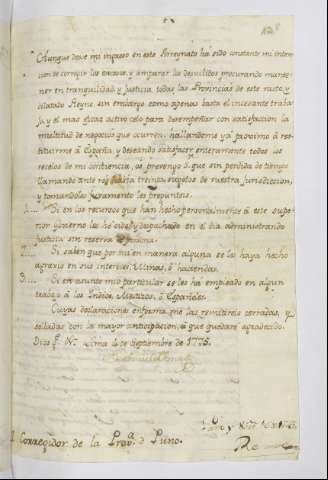 Aunque desde mi ingreso en este Virreynato ha sido constante mi inten
cion de corregir los excesos, y amparar los desvalidos procurando mante-
ner en tranquilidad y justicia todas las Provincias de este vasto, y
dilatado Reyno, sin embargo como apenas basta el incesante traba
jo, y el mas eficaz activo celo para desempeñar con satisfaccion la
multitud de negocios que ocurren, hallandome ya proximo à resti-
tuirme à España, y deseando satisfacer enteramente todos los
recelos de mi conciencia, os prevengo à que sin perdida de tiempo
llamando ante vos hasta treinta sugetos de vuestra jurisdiccion,
y tomandoles juramento les preguntes.
1.... Si en los recursos que han hecho personalmente à este supe-
rior govierno les he oido, y despachado en el dia administrando
justicia sin reserva de persona.
2.... Si saben que por mi en manera alguna se les haya hecho
agravio en sus interes, ò haciendas.
3.... Si en asunto mio particular se les ha empleado en algun
trabajo à los Indios, Mestizos, ò Españoles.
Cuyas declaraciones en forma me las remitireis cerradas, y
selladas con la mayor anticipacion, à que quedaré agradecido.
Dios g.e V.s Lima 4 de Septiembre de 1775.
Corregidor de la Prov.a de Puno.